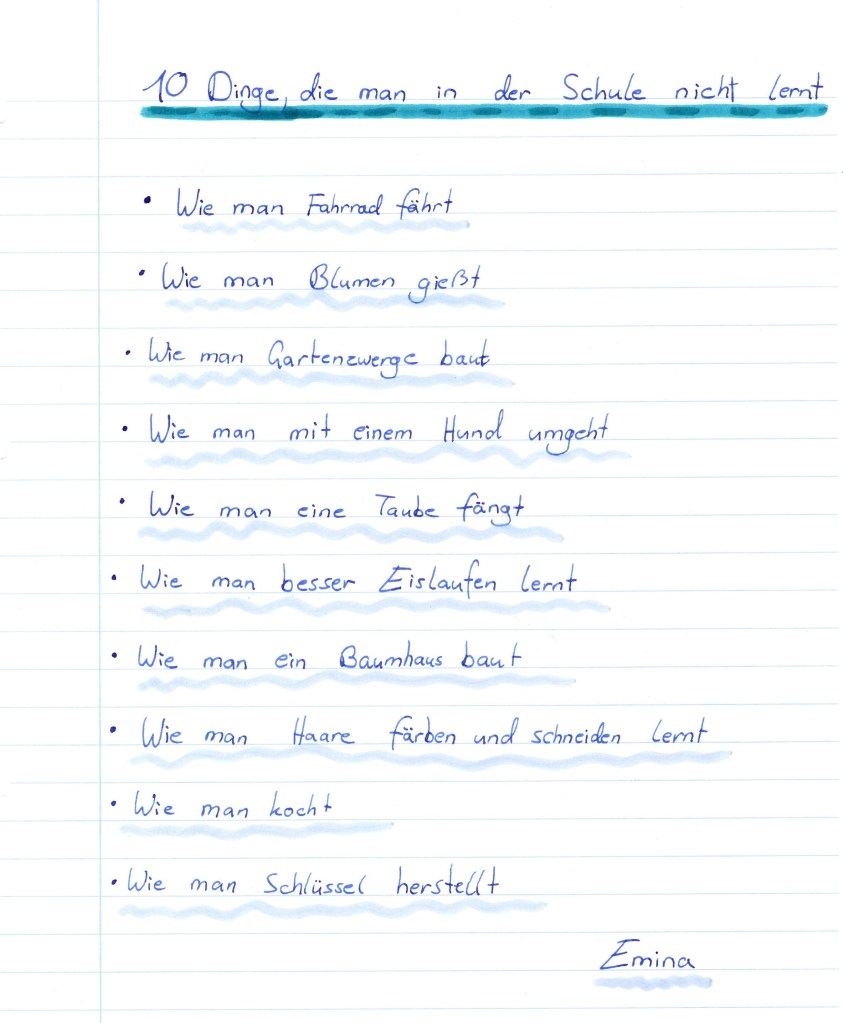 10 Dinge, die man in der Schule nicht lernt
• Wie man Fahrrad fährt
• Wie man Blumen gießt
• Wie man Gartenzwerge baut
• Wie man mit einem Hund umgeht
• Wie man eine Taube fängt
• Wie man besser Eislaufen lernt
• Wie man ein Baumhaus baut
• Wie man Haare färben und schneiden lernt
• Wie man kocht
• Wie man Schlüssel herstellt
Emina